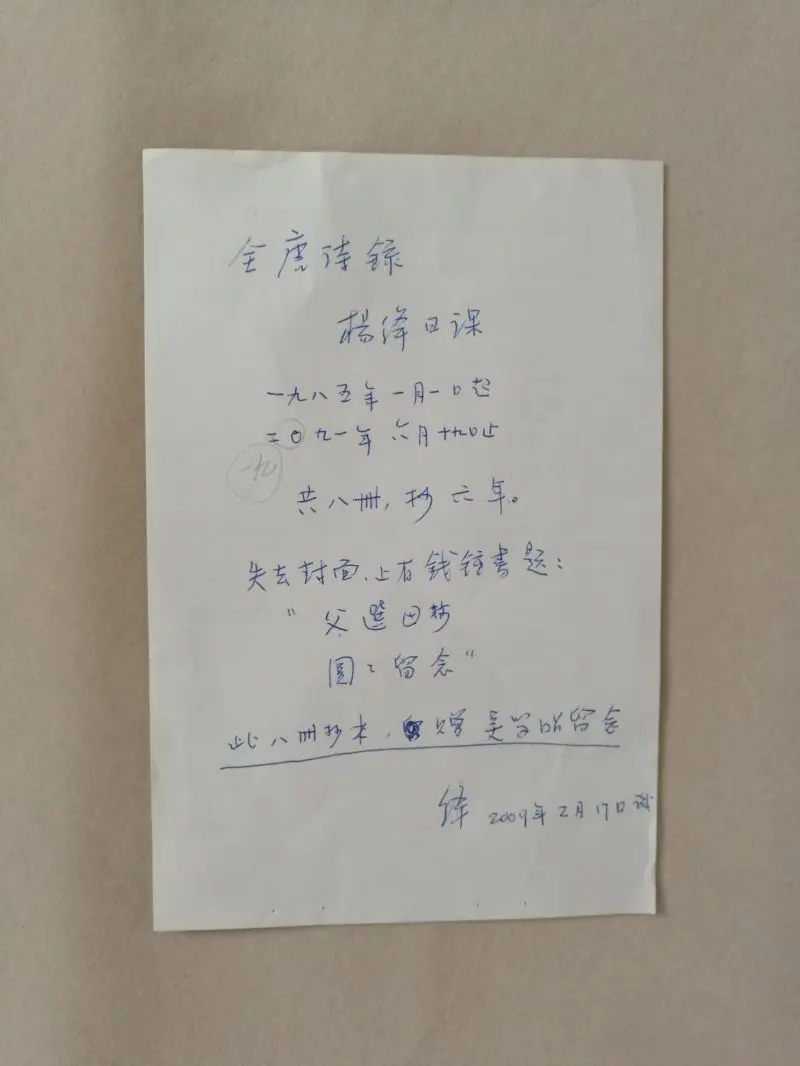 全唐诗录
楊绛日课
一九八五年一月一日起
二〇九一年六月十九日止
一九
共八册,抄六年。
失去封面、上有钱锺書题:
"父選母抄
圆々留念"
此八册抄本,赠吴学昭留念
绛 2009年2月17日识